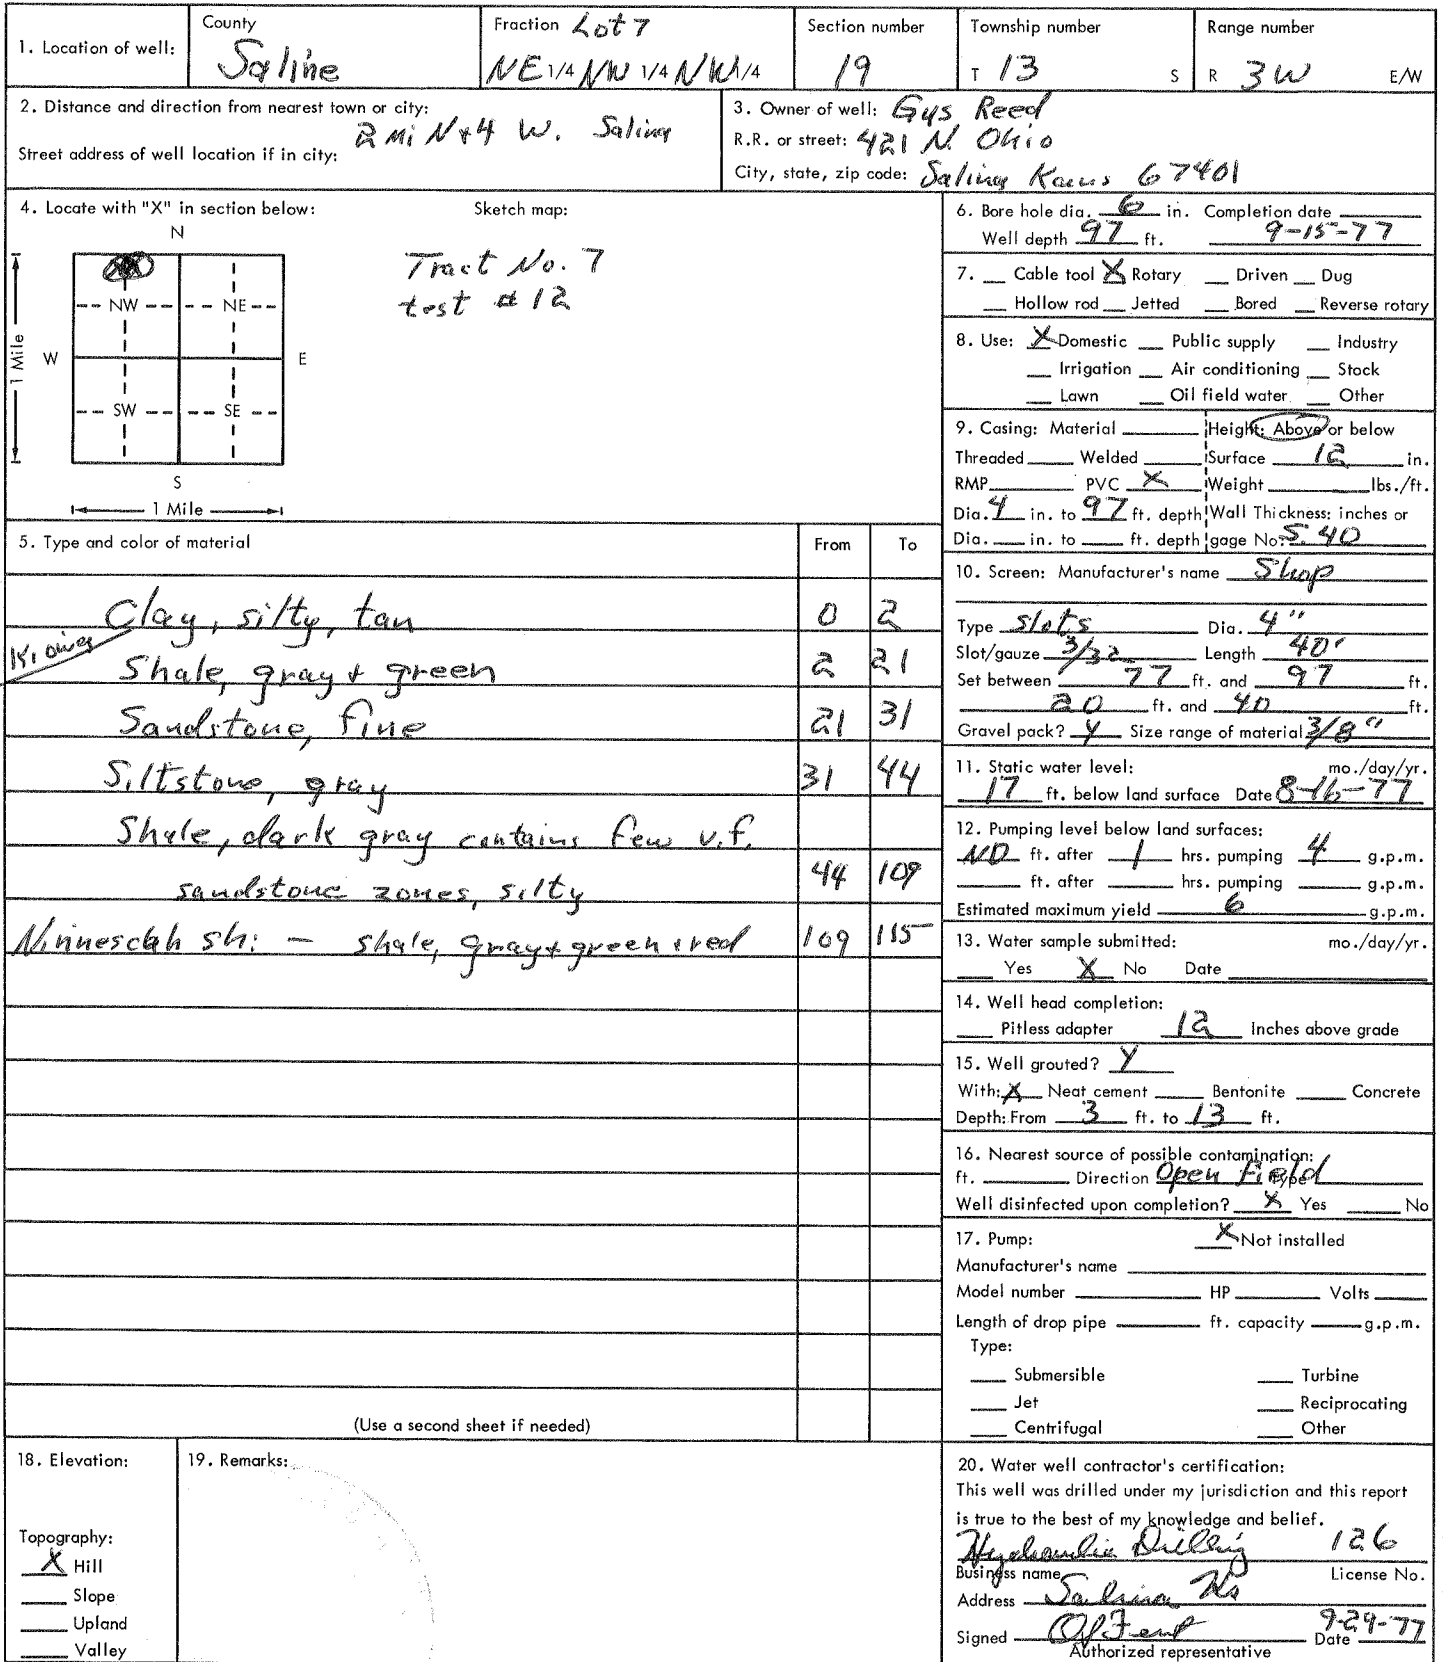 1. Location of well:
County
Saline
Fraction Lot 7
NE 1/4 NW 1/4 NW 1/4
Section number
19
Township number
T 13 S
Range number
R 3W E/W
2. Distance and direction from nearest town or city:
2 Mi N + 4 W. Salina
Street address of well location if in city:
3. Owner of well: Gus Reed
R.R. or street: 421 N. Ohio
City, state, zip code: Salina Kans 67401
4. Locate with "X" in section below:
Sketch map:
N
NW NE
W E
SW SE
S
1 Mile
1 Mile
Tract No. 7
test # 12
5. Type and color of material From To
Clay, silty, tan 0 2
Kiowa
Shale, gray + green 2 21
Sandstone, fine 21 31
Siltstone, gray 31 44
Shale, dark gray contains few v.f.
sandstone zones, silty 44 109
Ninnescah sh: - shale, gray + green + red 109 115
(Use a second sheet if needed)
6. Bore hole dia. 6 in. Completion date
Well depth 97 ft. 9-15-77
7. Cable tool X Rotary Driven Dug
Hollow rod Jetted Bored Reverse rotary
8. Use: X Domestic Public supply Industry
Irrigation Air conditioning Stock
Lawn Oil field water Other
9. Casing: Material Height: Above or below
Threaded Welded Surface 12 in.
RMP PVC X Weight lbs./ft.
Dia. 4 in. to 97 ft. depth Wall Thickness: inches or
Dia. in. to ft. depth gage No. S. 40
10. Screen: Manufacturer's name Shop
Type slots Dia. 4"
Slot/gauze 3/32 Length 40'
Set between 77 ft. and 97 ft.
20 ft. and 40 ft.
Gravel pack? Y Size range of material 3/8"
11. Static water level: mo./day/yr.
17 ft. below land surface Date 8-16-77
12. Pumping level below land surfaces:
ND ft. after 1 hrs. pumping 4 g.p.m.
ft. after hrs. pumping g.p.m.
Estimated maximum yield 6 g.p.m.
13. Water sample submitted: mo./day/yr.
Yes X No Date
14. Well head completion:
Pitless adapter 12 Inches above grade
15. Well grouted? Y
With: X Neat cement Bentonite Concrete
Depth: From 3 ft. to 13 ft.
16. Nearest source of possible contamination:
ft. Direction Open Field Type
Well disinfected upon completion? X Yes No
17. Pump: X Not installed
Manufacturer's name
Model number HP Volts
Length of drop pipe ft. capacity g.p.m.
Type:
Submersible Turbine
Jet Reciprocating
Centrifugal Other
18. Elevation:
Topography:
X Hill
Slope
Upland
Valley
19. Remarks:
20. Water well contractor's certification:
This well was drilled under my jurisdiction and this report
is true to the best of my knowledge and belief.
Hydraulic Drilling 126
Business name License No.
Address Salina Ks
Signed 9-29-77
Authorized representative Date